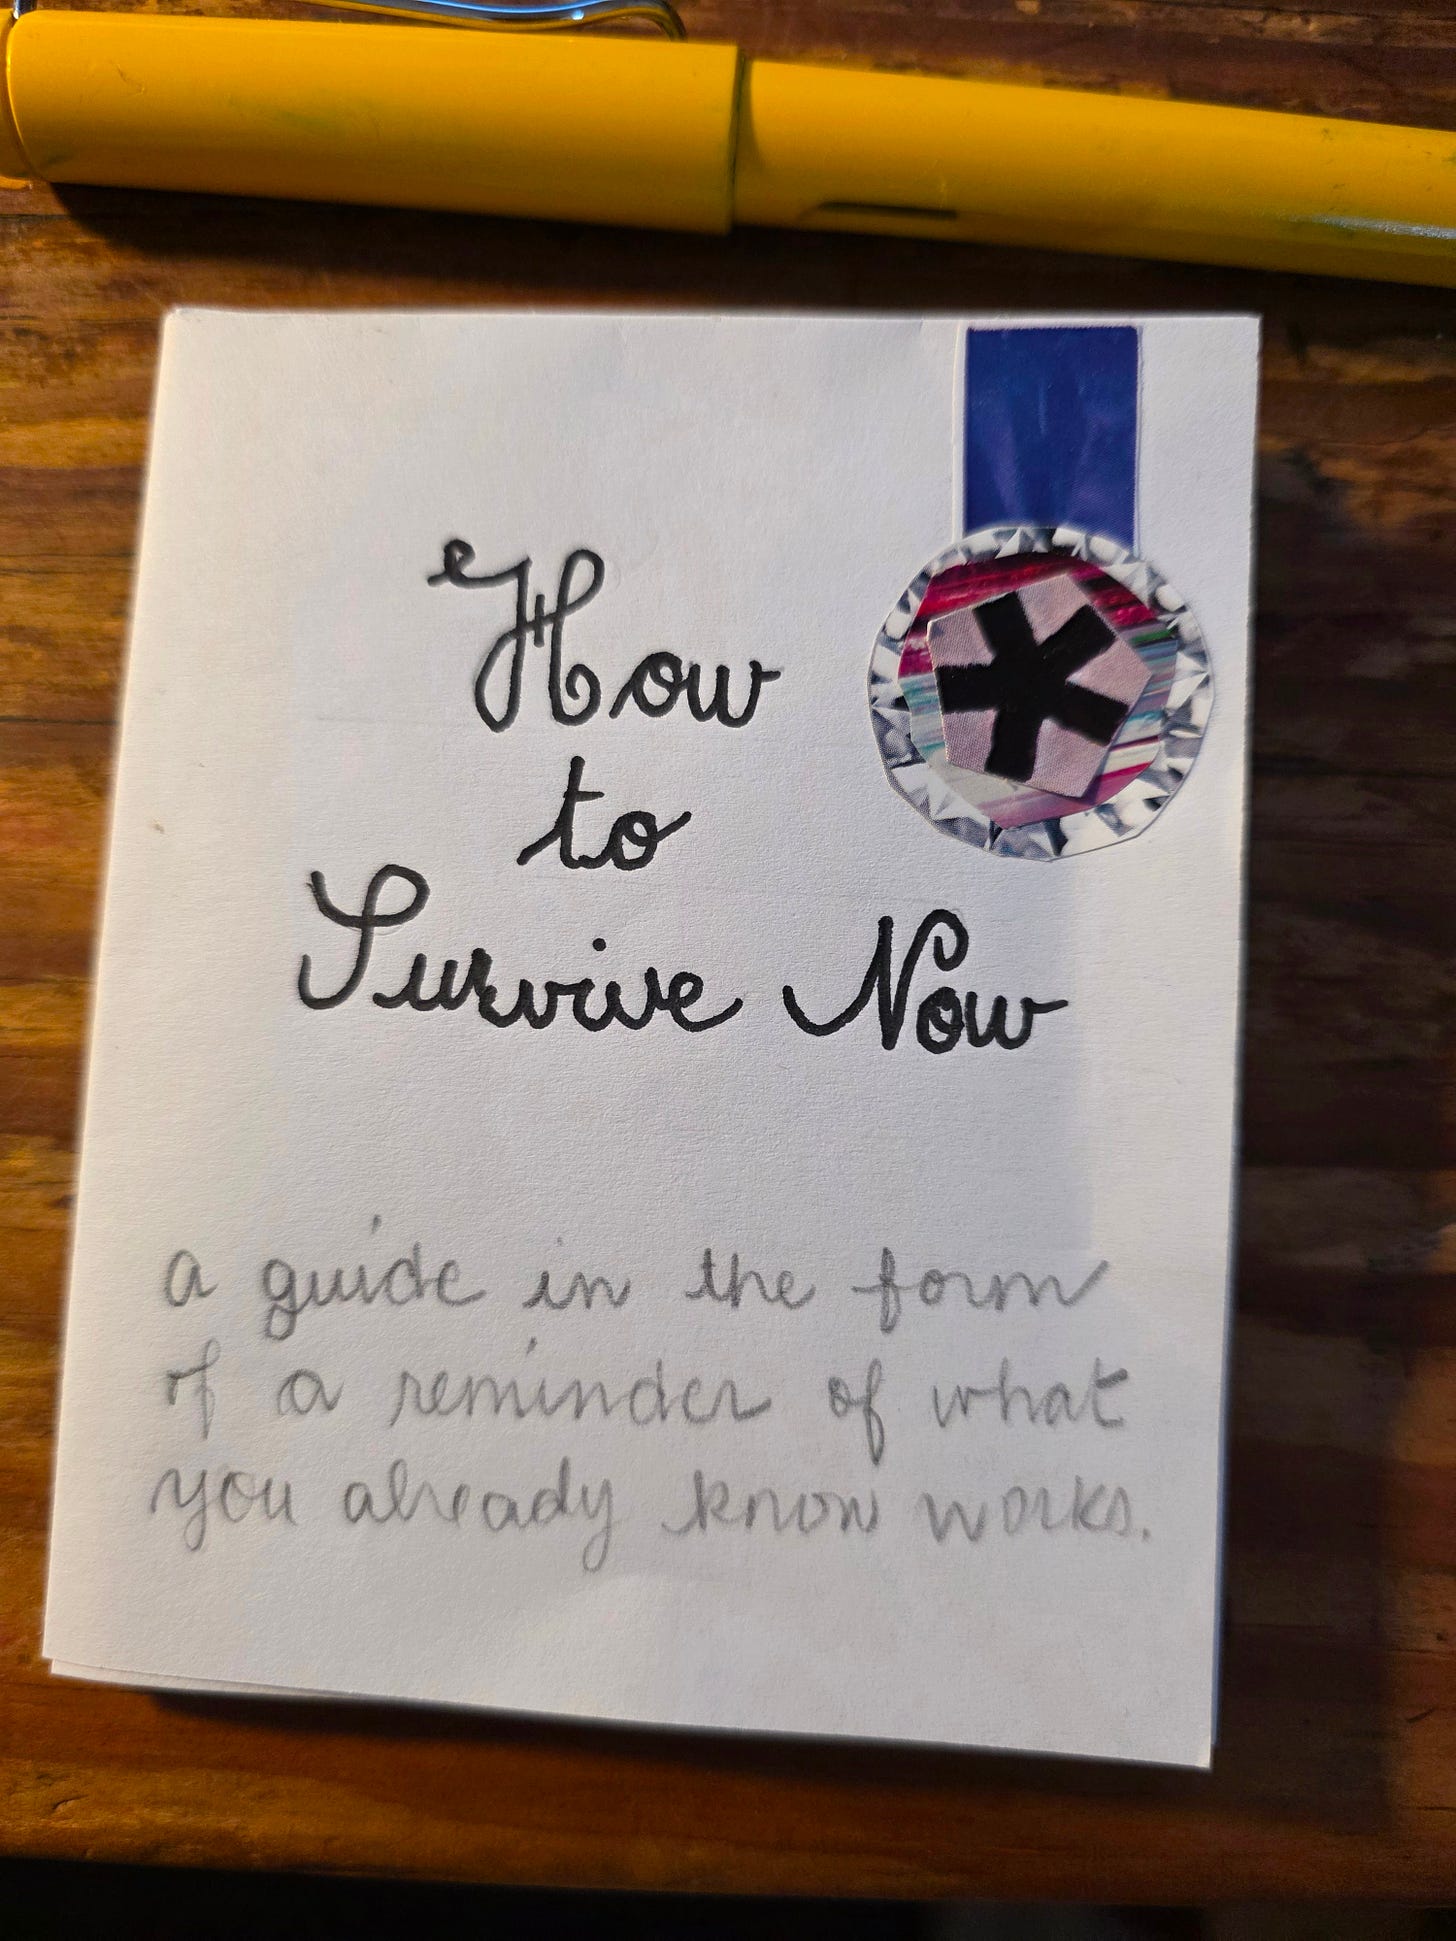 How
to
Survive Now
a guide in the form
of a reminder of what
you already know works.